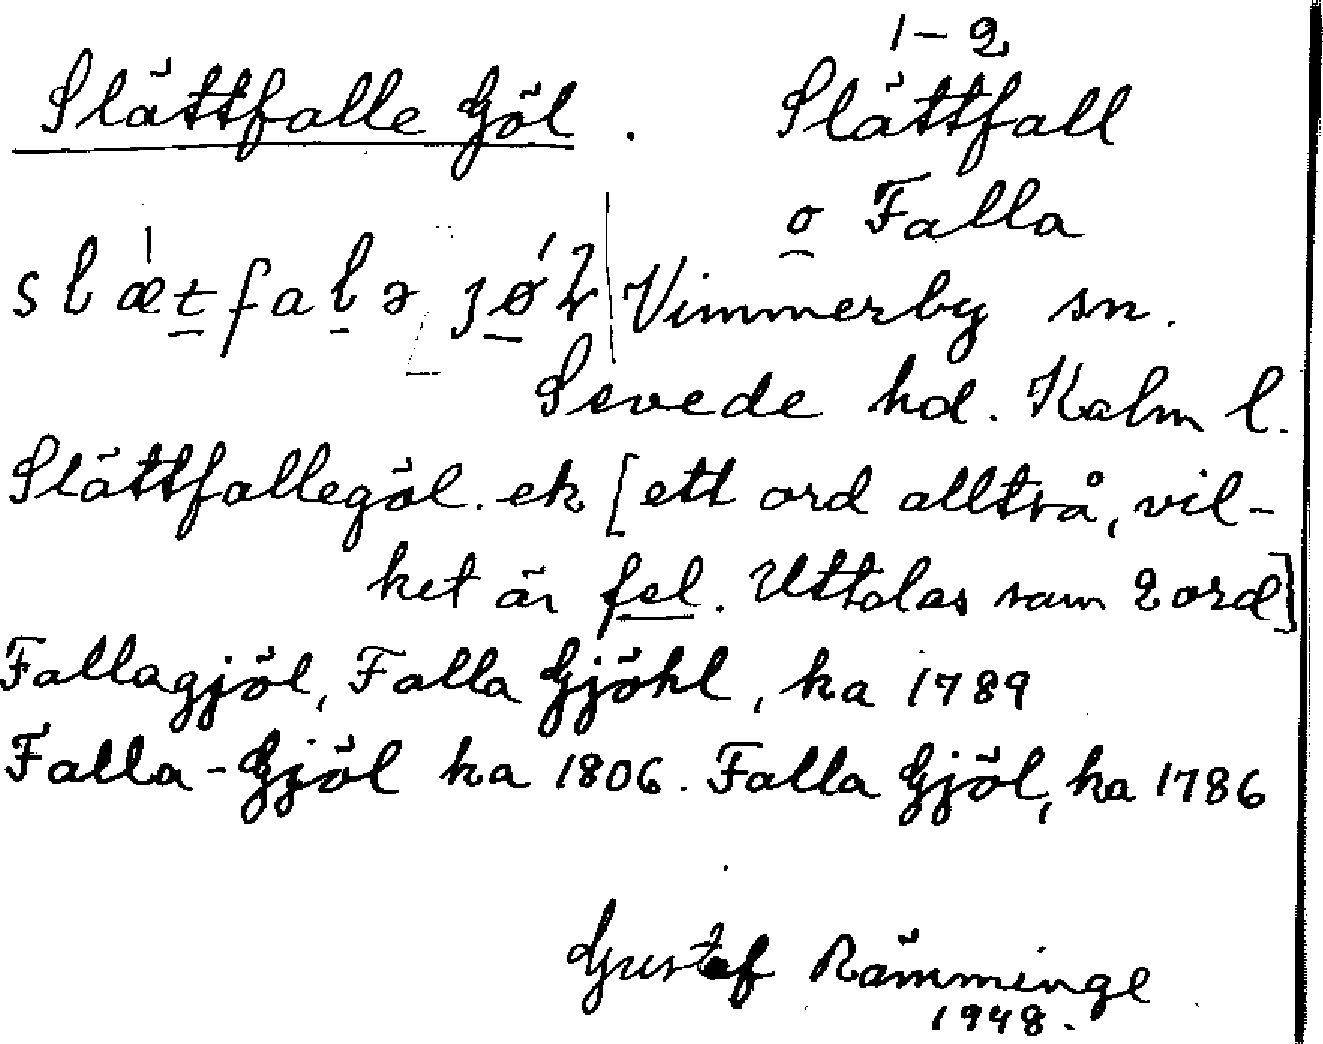 1-2
Slättfalle Göl . Slättfall
o Falla
slætfalə jøl Vimmerby sn.
Sevede hd. Kalm l.
Slättfallegöl. ek [ett ord alltså, vil-
ket är fel. Uttalas som 2 ord]
Fallagjöl, Falla Gjöhl, ka 1789
Falla-Gjöl ka 1806. Falla Gjöl, ka 1786
Gustaf Rämminge
1948.